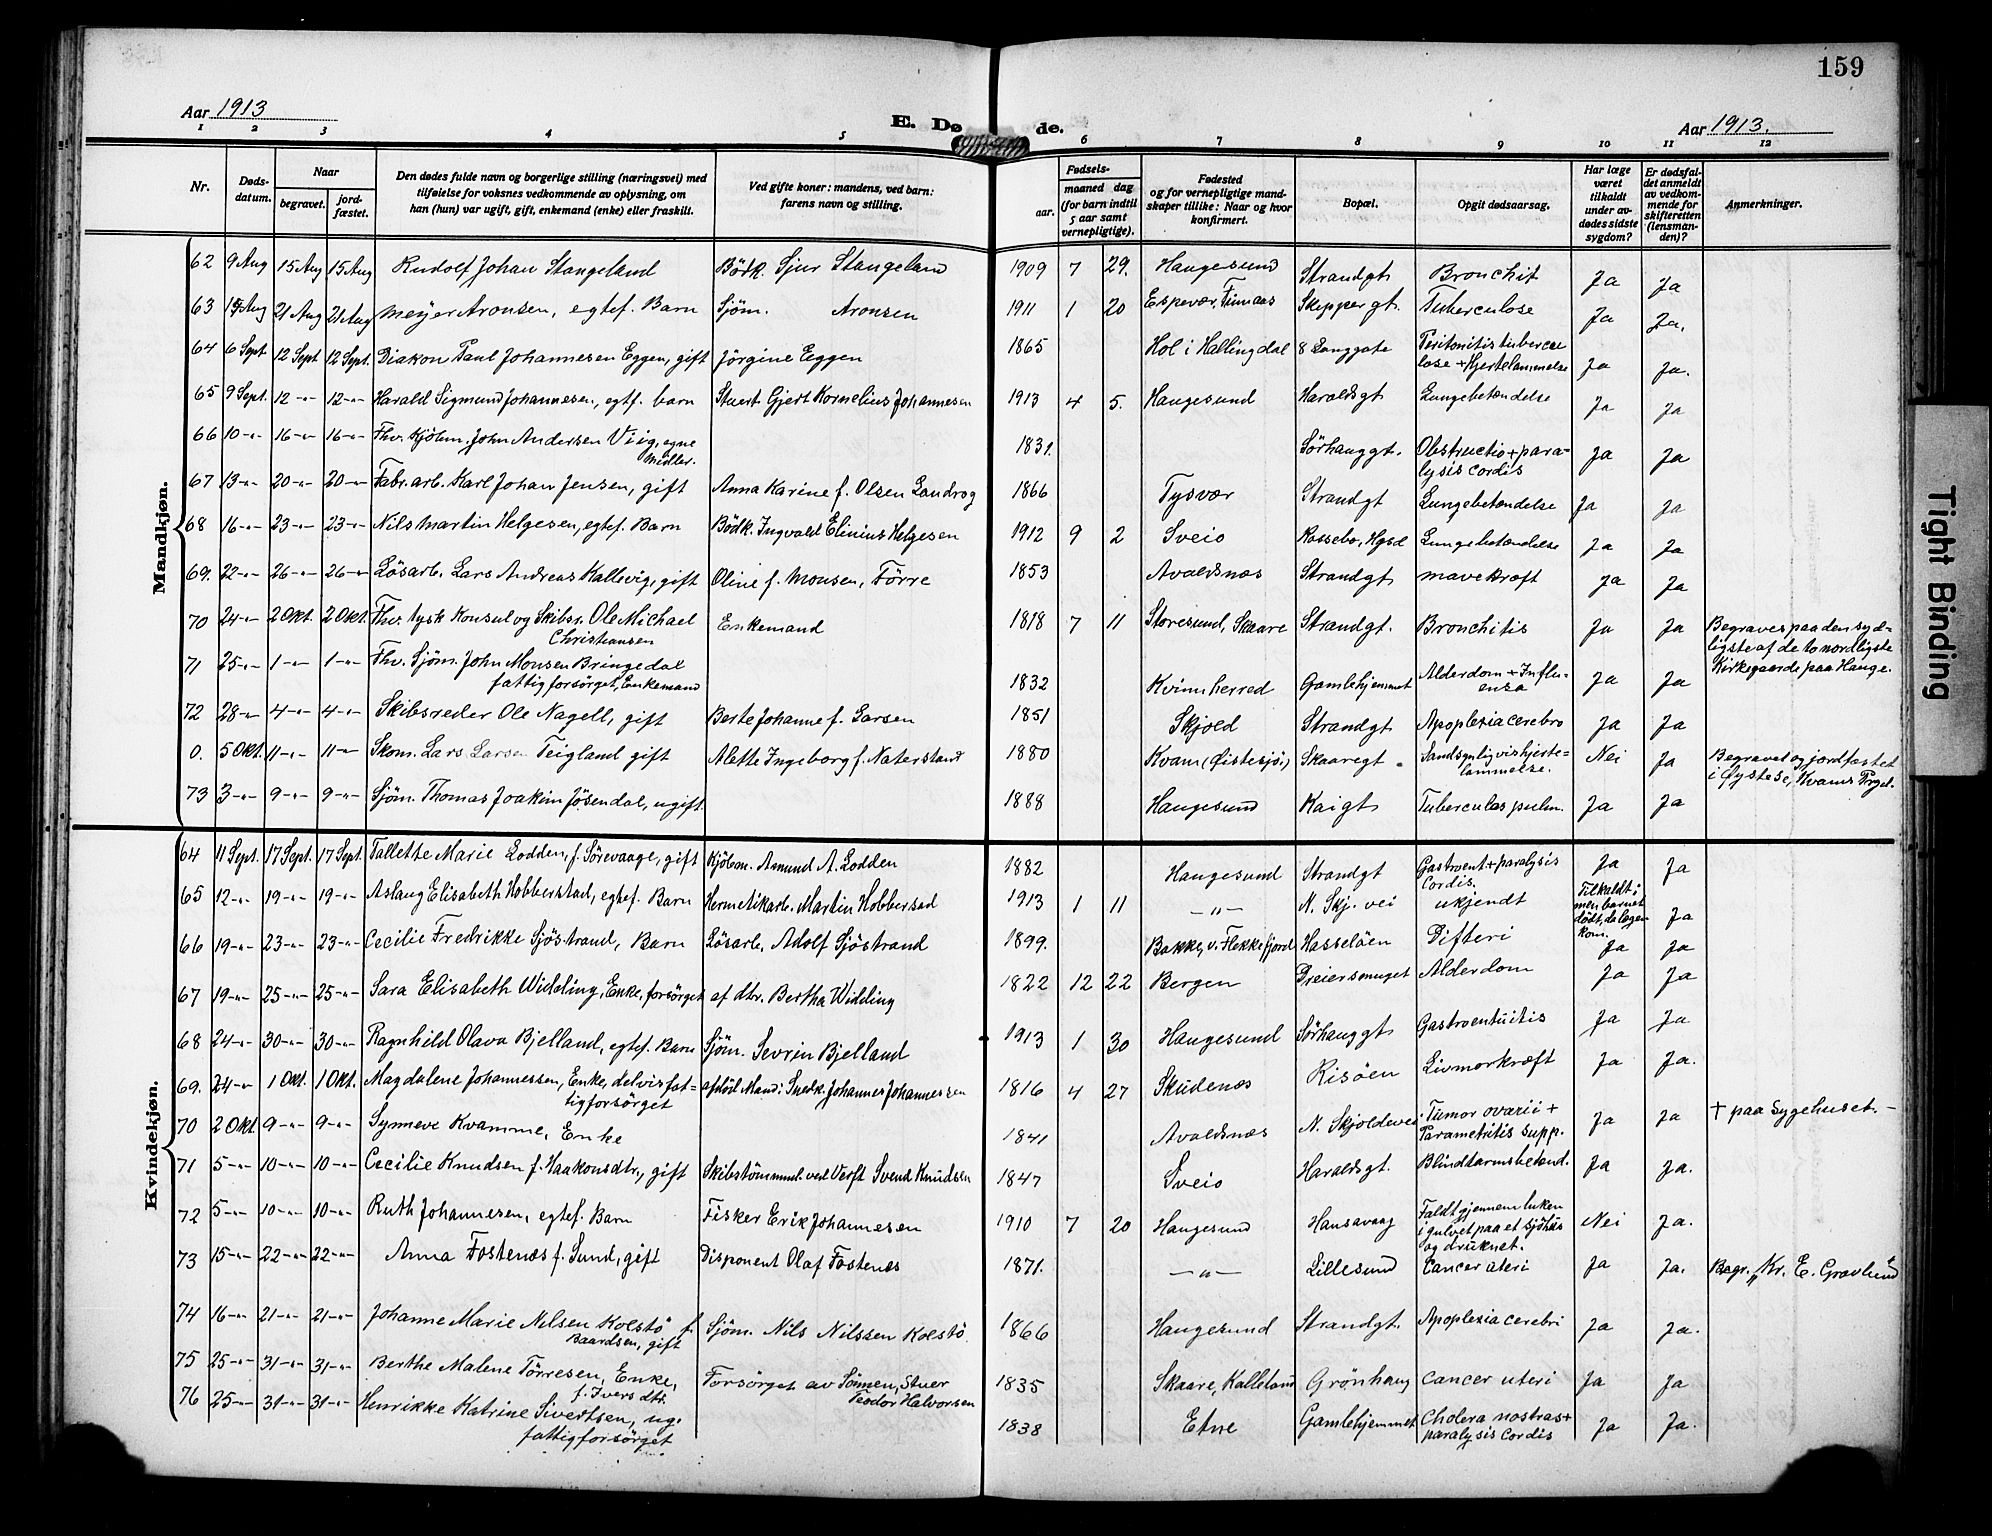 159
Aar 1913
E. Døde.
Aar 1913.
1 2 3 4 5 6 7 8 9 10 11 12
Nr.
Døds-datum.
Naar
begravet.
jord-fæstet.
Den dødes fulde navn og borgerlige stilling (næringsvei) med
tilføielse for voksnes vedkommende av oplysning, om
han (hun) var ugift, gift, enkemand (enke) eller fraskilt.
Ved gifte koner: mandens, ved barn:
farens navn og stilling.
Fødsels-
aar.
maaned dag
(for barn indtil
5 aar samt
vernepligtige).
Fødested
og for vernepligtige mand-
skaper tillike: Naar og hvor
konfirmert.
Bopæl.
Opgit dødsaarsag.
Har læge
været
tilkaldt
under av-
dødes sidste
sygdom?
Er dødsfal-
det anmeldt
av vedkom-
mende for
skifteretten
(lensman-
den)?
Anmerkninger.
Mandkjøn.
62 9 Aug 15 Aug 15 Aug Rudolf Johan Stangeland Bödk. Sjur Stangeland 1909 7 29. Haugesund Strandgt Bronchit Ja Ja
63 15 Aug 21 Aug 21 Aug Meyer Aronsen, egtef. Barn Sjöm. Aronsen 1911 1 20 Espevær, Finnaas Skippergt. Tuberculose Ja Ja.
64 6 Sept 12 Sept 12 Sept. Diakon Paul Johannesen Eggen, gift Jörgine Eggen 1865 Hol i Hallingdal 8 Langgate Peritonitis tubercu
lose + Hjertelammelse Ja Ja.
65 9 Sept. 12 -"- 12 -"- Harald Sigmund Johannesen, egtf. barn Stuert Gjert Kornelius Johannesen 1913 4 5. Haugesund Haraldsgt Lungebetændelse Ja Ja
66 10 -"- 16 -"- 16 -"- Fhv. Kjöbm. John Andersen Viig, egne
midler. 1831. Sörhauggt. Obstructio + para-
lysis cordis Ja Ja
67 13 -"- 20 -"- 20 -"- Fabr. arb. Karl Johan Jensen, gift Anna Karine f. Olsen Landrog 1866 Tysvær Strandgt Lungebetændelse Ja Ja
68 16 -"- 23 -"- 23 -"- Nils Martin Helgesen, egtef. Barn Bödk. Ingvald Elinius Helgesen 1912 9 2 Sveio Rossebø, Hgsd Lungebetændelse Ja Ja
69. 22 -"- 26 -"- 26 -"- Lösarb. Lars Andreas Kallevig, gift Oline f. Monsen, Förre 1853 Avaldsnæs Strandgt Mavekræft Ja Ja
70 24 -"- 2 Okt. 2 Okt. Fhv. tysk Konsul og Skibsr. Ole Michael
Christiansen Enkemand 1818 7 11 Storesund, Skaare Strandgt. Bronchitis Ja Ja Begraves paa den syd-
ligste af de to nordligste
Kirkegaarde paa Hauge.
71 25 -"- 1 -"- 1 -"- Fhv. Sjöm. John Monsen Bringedal
fattigforsörget, Enkemand 1832 Kvinnherred Gamlehjemmet Alderdom + Influ-
enza Ja Ja
72 28 -"- 4 -"- 4 -"- Skibsreder Ole Nagell, gift Berte Johanne f. Larsen 1851 Skjold Strandgt Apoplexia cerebro Ja Ja
0. 5 Okt. 11 -"- 11 -"- Skom. Lars Larsen Teigland gift Alette Ingeborg f. Naterstad 1880 Kvam (Øistesjö) Skaaregt Sandsynligvis hjerte-
lammelse. Nei Ja Begravet og jordfæstet
i Øystese, Kvams Prgd.
73 3 -"- 9 -"- 9 -"- Sjöm. Thomas Joakim Jösendal, ugift. 1888 Haugesund Kaigt Tuberculos pulm. Ja Ja
Kvindekjøn.
64 11 Sept. 17 Sept. 17 Sept. Tallette Marie Lodden, f. Sörevaage, gift Kjöbm. Amund A. Lodden 1882 Haugesund Strandgt Gastroent + paralysis
Cordis. Ja Ja
65 12 -"- 19 -"- 19 -"- Aslaug Elisabeth Hobberstad, egtef. Barn Hermetikarb. Martin Hobberstad 1913 1 11 -"- N. Skj. vei ukjendt Tilkaldt;
men barnet
dödt, da lægen
kom. Ja
66 19 -"- 23 -"- 23 -"- Cecilie Fredrikke Sjöstrand, Barn Lösarb. Adolf Sjöstrand 1899. Bakke, v. Flekkefjord Hasselöen Difteri Ja Ja
67 19 -"- 25 -"- 25 -"- Sara Elisabeth Widding, Enke, forsörget af dtr. Bertha Widding 1822 12 22 Bergen Dreiersmuget Alderdom Ja Ja
68 24 -"- 30 -"- 30 -"- Ragnhild Olava Bjelland, egtef. Barn Sjöm. Sevrin Bjelland 1913 1 30 Haugesund Sörhauggt Gastroentuitis Ja Ja
69. 24 -"- 1 Okt. 1 Okt. Magdalene Johannessen, Enke, delvis fat-
tigforsörget afdöd Mand: Snedk. Johannes Johannessen 1816 4 27 Skudenæs Risöen Livmorkræft Ja Ja.
70 2 Okt 9 -"- 9 -"- Synneve Kvamme, Enke 1841 Avaldsnæs N. Skjoldevei Tumor ovarii +
Parametritis supp. Ja Ja + paa Sygehuset. -
71 5 -"- 10 -"- 10 -"- Cecilie Knudsen f. Haakonsdtr, gift Skibstömmmd. ved Verft Svend Knudsen 1847 Sveio Haraldsgt. Blindtarmsbetænd. Ja Ja.
72 5 -"- 10 -"- 10 -"- Ruth Johannesen, egtef. Barn Fisker Erik Johannesen 1910 7 20 Haugesund Hansavaag Faldt gjennem luken
i gulvet paa et sjöhus
og druknet. Nei Ja.
73 15 -"- 22 -"- 22 -"- Anna Fostenæs f. Sund, gift Disponent Olaf Fostenæs 1871. -"- Lillesund Cancer uteri Ja Ja. Begr. Kr. E. Gravlund
74 16 -"- 21 -"- 21 -"- Johanne Marie Nilsen Kolstö f.
Baardsen, gift Sjöm. Nils Nilssen Kolstö. 1866 Haugesund Strandgt. Apoplexia cerebri Ja Ja.
75 25 -"- 31 -"- 31 -"- Berthe Malene Törresen, Enke,
f. Ivers dtr. Forsörget av Sönnen, Stuer
Teodor Halvorsen 1835 Skaare, Kalleland Grönhaug Cancer uteri Ja Ja
76 25 -"- 31 -"- 31 -"- Henrikke Katrine Sivertsen, ug.
fattigforsörget 1838 Etne Gamlehjemmet Cholera nostras +
paralysis Cordis Ja Ja.
Tight Binding